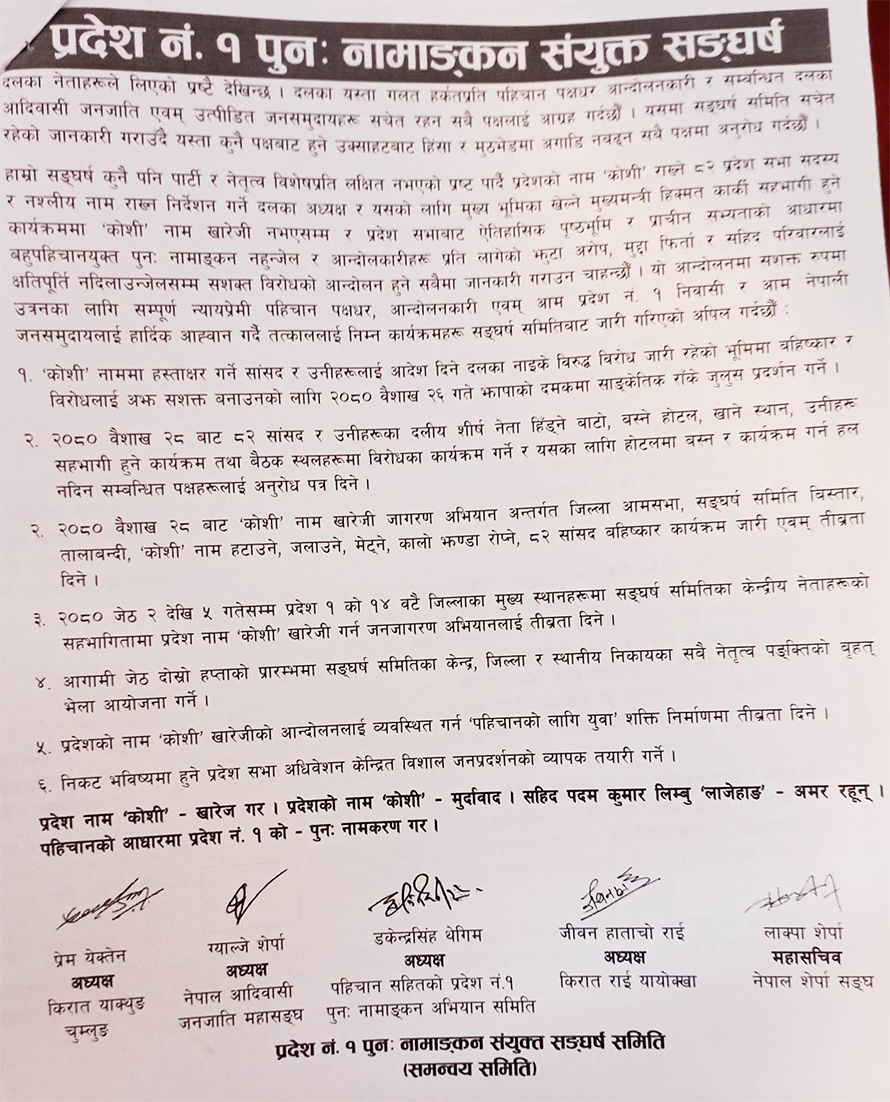 प्रदेश नं. १ पुनः नामाङ्कन संयुक्त सङ्घर्ष
दलका नेताहरूले लिएको प्रष्टै देखिन्छ । दलका यस्ता गलत हर्कतप्रति पहिचान पक्षधर आन्दोलनकारी र सम्बन्धित दलका
आदिवासी जनजाति एवम् उत्पीडित जनसमुदायहरू सचेत रहन सबै पक्षलाई आग्रह गर्दछौं । यसमा सङ्घर्ष समिति सचेत
रहेको जानकारी गराउँदै यस्ता कुनै पक्षबाट हुने उक्साहटबाट हिंसा र मुठभेडमा अगाडि नबढ्न सबै पक्षमा अनुरोध गर्दछौं ।
हाम्रो सङ्घर्ष कुनै पनि पार्टी र नेतृत्व विशेषप्रति लक्षित नभएको प्रष्ट पार्दै प्रदेशको नाम ‘कोशी’ राख्ने ८२ प्रदेश सभा सदस्य
र नश्लीय नाम राख्न निर्देशन गर्ने दलका अध्यक्ष र यसको लागि मुख्य भूमिका खेल्ने मुख्यमन्त्री हिक्मत कार्की सहभागी हुने
कार्यक्रममा ‘कोशी’ नाम खारेजी नभएसम्म र प्रदेश सभाबाट ऐतिहासिक पृष्ठभूमि र प्राचीन सभ्यताको आधारमा
बहुपहिचानयुक्त पुनः नामाङ्कन नहुन्जेल र आन्दोलकारीहरू प्रति लागेको झुटा अरोप, मुद्दा फिर्ता र सहिद परिवारलाई
क्षतिपूर्ति नदिलाउन्जेलसम्म सशक्त विरोधको आन्दोलन हुने सबैमा जानकारी गराउन चाहन्छौं । यो आन्दोलनमा सशक्त रुपमा
उत्रनका लागि सम्पूर्ण न्यायप्रेमी पहिचान पक्षधर, आन्दोलनकारी एवम् आम प्रदेश नं. १ निवासी र आम नेपाली
जनसमुदायलाई हार्दिक आह्वान गर्दै तत्काललाई निम्न कार्यक्रमहरू सङ्घर्ष समितिबाट जारी गरिएको अपिल गर्दछौं :
१. ‘कोशी’ नाममा हस्ताक्षर गर्ने सांसद र उनीहरूलाई आदेश दिने दलका नाइके विरुद्ध विरोध जारी रहेको भूमिमा बहिष्कार र
विरोधलाई अझ सशक्त बनाउनको लागि २०८० वैशाख २६ गते झापाको दमकमा साङ्केतिक राँके जुलुस प्रदर्शन गर्ने ।
२. २०८० वैशाख २८ बाट ८२ सांसद र उनीहरूका दलीय शीर्ष नेता हिँड्ने बाटो, बस्ने होटल, खाने स्थान, उनीहरू
सहभागी हुने कार्यक्रम तथा बैठक स्थलहरूमा विरोधका कार्यक्रम गर्ने र यसका लागि होटलमा बस्न र कार्यक्रम गर्न हल
नदिन सम्बन्धित पक्षहरूलाई अनुरोध पत्र दिने ।
२. २०८० वैशाख २८ बाट ‘कोशी’ नाम खारेजी जागरण अभियान अन्तर्गत जिल्ला आमसभा, सङ्घर्ष समिति विस्तार,
तालाबन्दी, ‘कोशी’ नाम हटाउने, जलाउने, मेट्ने, कालो झण्डा रोप्ने, ८२ सांसद बहिष्कार कार्यक्रम जारी एवम् तीव्रता
दिने ।
३. २०८० जेठ २ देखि ५ गतेसम्म प्रदेश १ को १४ वटै जिल्लाका मुख्य स्थानहरूमा सङ्घर्ष समितिका केन्द्रीय नेताहरूको
सहभागितामा प्रदेश नाम ‘कोशी’ खारेजी गर्न जनजागरण अभियानलाई तीव्रता दिने ।
४. आगामी जेठ दोस्रो हप्ताको प्रारम्भमा सङ्घर्ष समितिका केन्द्र, जिल्ला र स्थानीय निकायका सबै नेतृत्व पङ्क्तिको बृहत्
भेला आयोजना गर्ने ।
५. प्रदेशको नाम ‘कोशी’ खारेजीको आन्दोलनलाई व्यवस्थित गर्न ‘पहिचानको लागि युवा’ शक्ति निर्माणमा तीव्रता दिने ।
६. निकट भविष्यमा हुने प्रदेश सभा अधिवेशन केन्द्रित विशाल जनप्रदर्शनको व्यापक तयारी गर्ने ।
प्रदेश नाम ‘कोशी’ - खारेज गर । प्रदेशको नाम ‘कोशी’ - मुर्दावाद । सहिद पदम कुमार लिम्बु ‘लाजेहाङ’ - अमर रहून् ।
पहिचानको आधारमा प्रदेश नं. १ को - पुनः नामकरण गर ।
प्रेम येक्तेन
अध्यक्ष
किरात याक्थुङ
चुम्लुङ
ग्याल्जे शेर्पा
अध्यक्ष
नेपाल आदिवासी
जनजाति महासङ्घ
डकेन्द्रसिंह थेगिम
अध्यक्ष
पहिचान सहितको प्रदेश नं.१
पुनः नामाङ्कन अभियान समिति
जीवन हाताचो राई
अध्यक्ष
किरात राई यायोक्खा
लाक्पा शेर्पा
महासचिव
नेपाल शेर्पा सङ्घ
प्रदेश नं. १ पुनः नामाङ्कन संयुक्त सङ्घर्ष समिति
(समन्वय समिति)